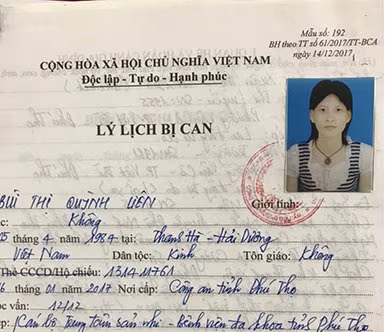 Mẫu số: 192
BH theo TT số 61/2017/TT-BCA
ngày 14/12/2017
CỘNG HÒA XÃ HỘI CHỦ NGHĨA VIỆT NAM
Độc lập - Tự do - Hạnh phúc
LÝ LỊCH BỊ CAN
Giới tính:
BÙI THỊ QUỲNH LIÊN
Không
tháng 4 năm 1984 tại: Thanh Hà - Hải Dương
Việt Nam Dân tộc: Kinh Tôn giáo: Không
Thẻ CCCD/Hộ chiếu: 131411761
tháng 01 năm 2017 Nơi cấp: Công an tỉnh Phú Thọ
vấn: 12/12
Cán bộ Trung tâm sản nhi - Bệnh viện đa khoa tỉnh Phú Thọ